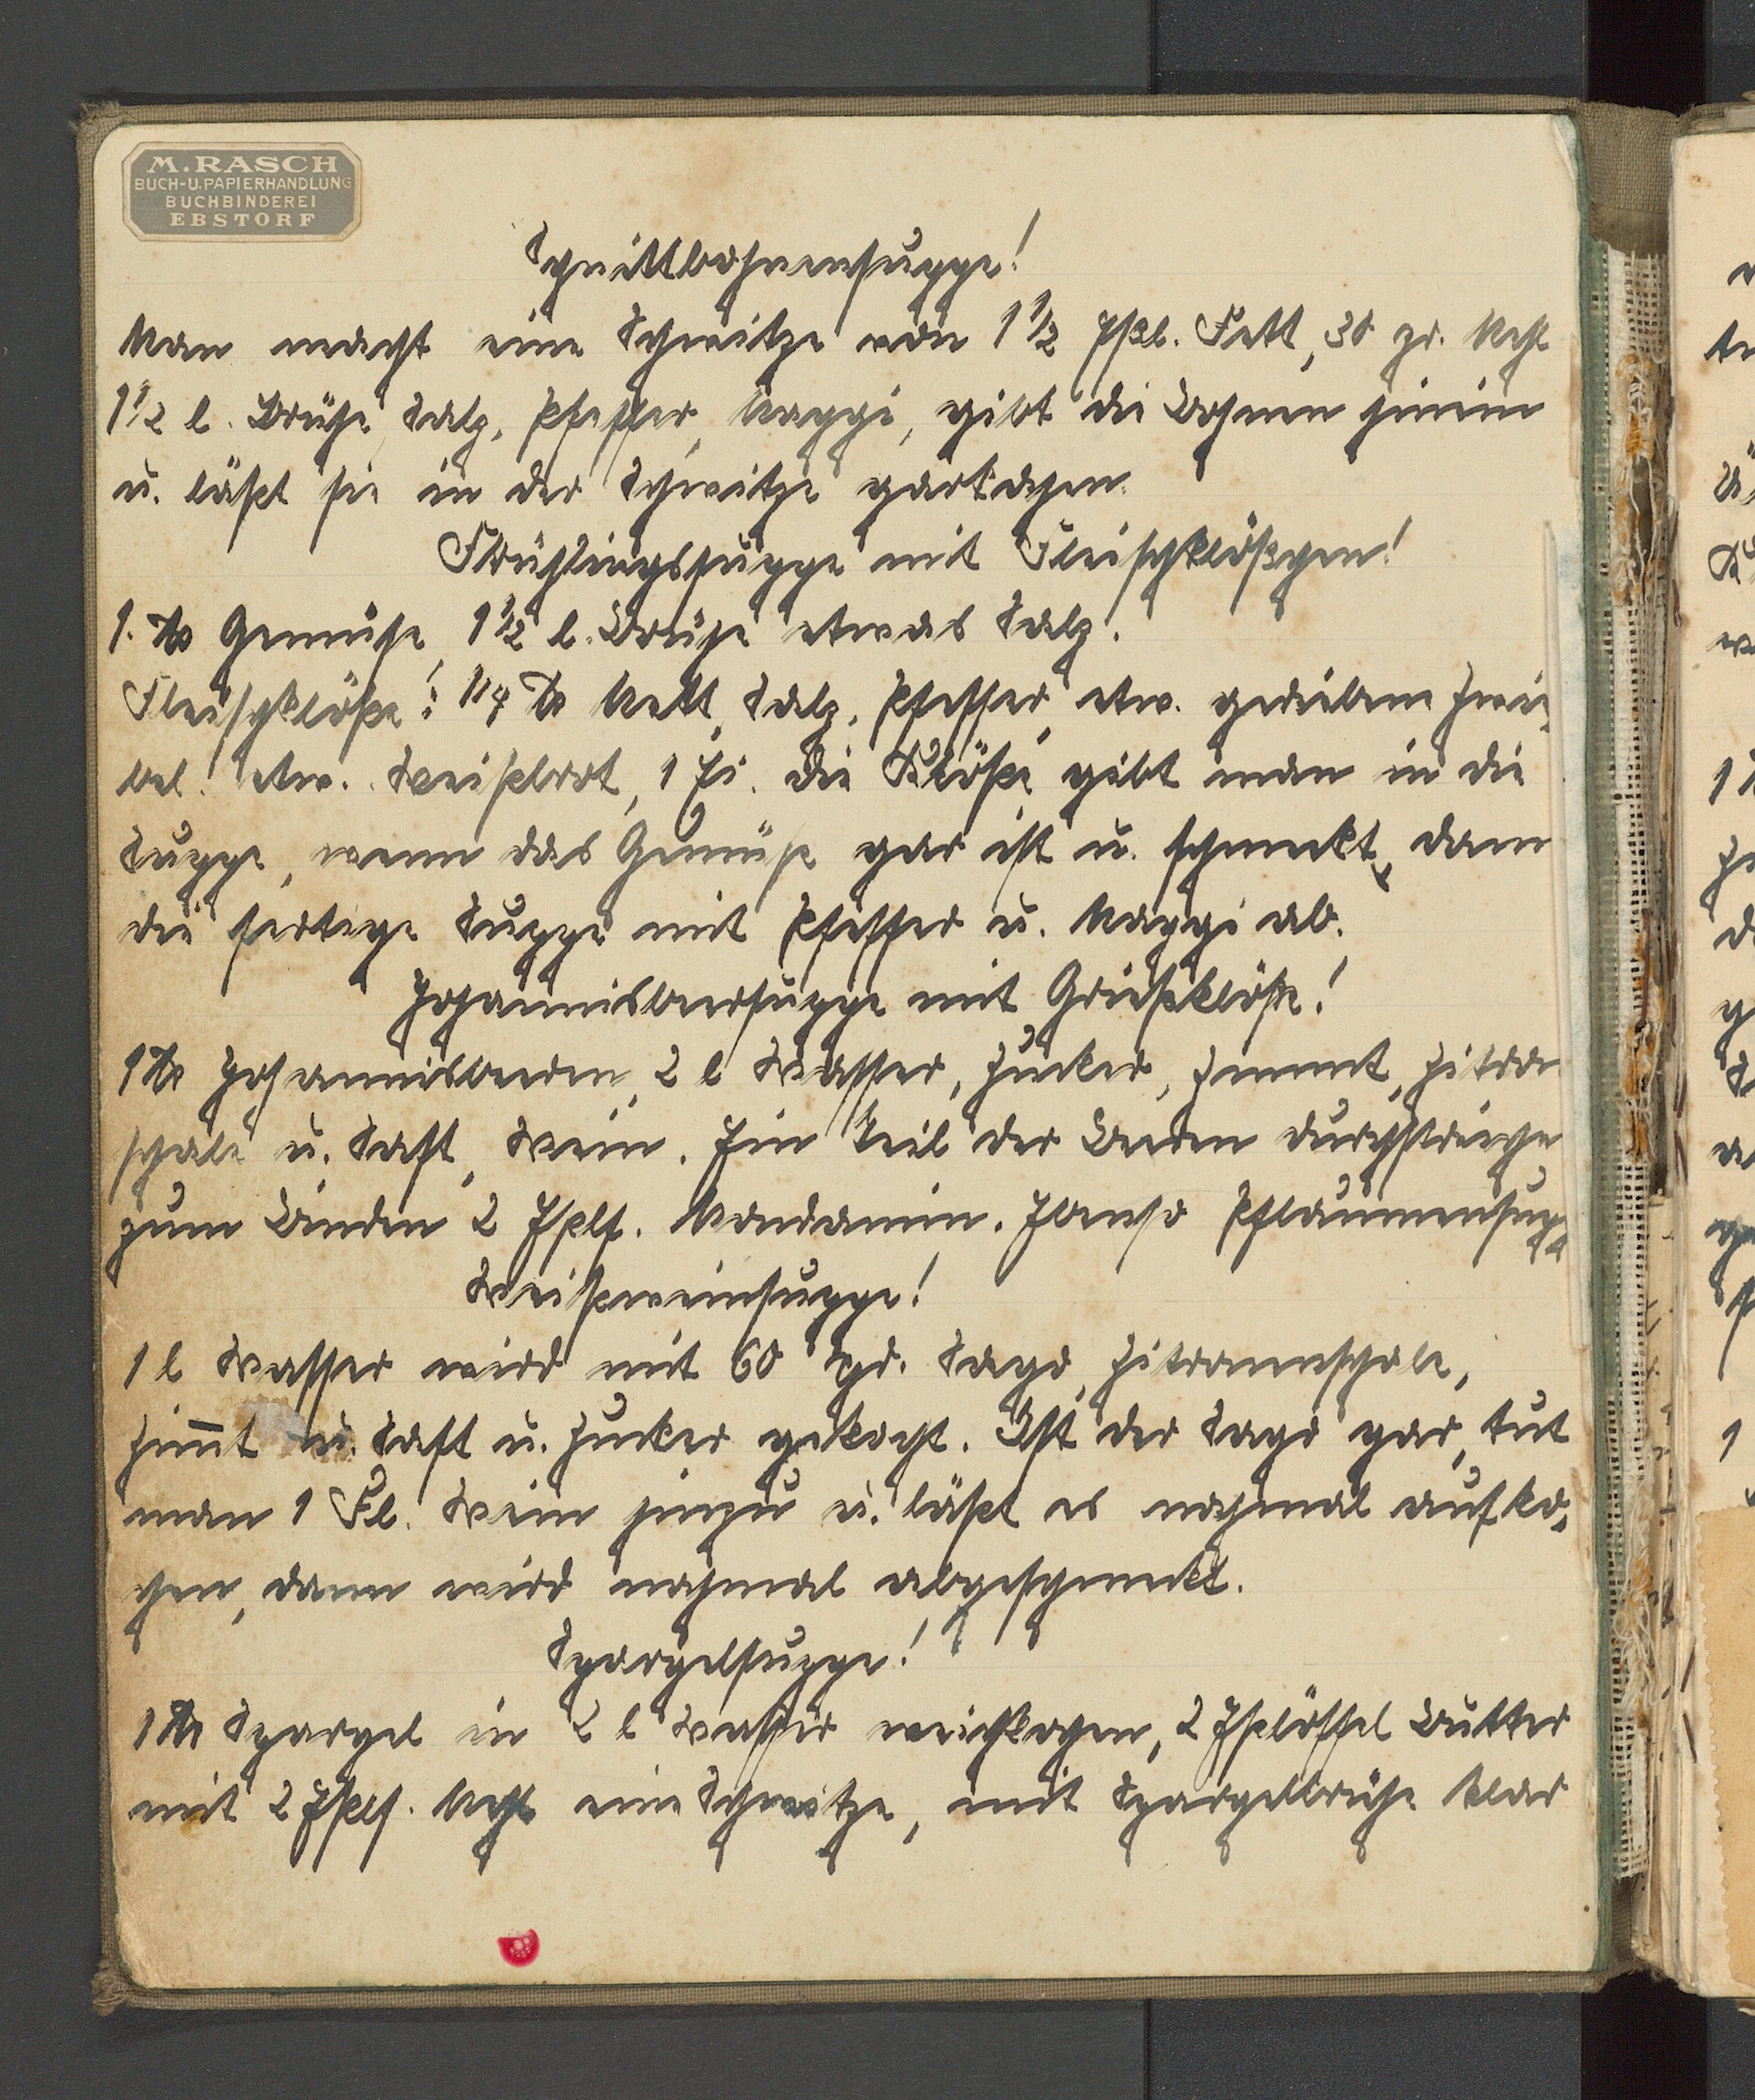 M. RASCH
BUCH-U. PAPIERHANDLUNG
BUCHBINDEREI
EBSTORF
Schnittbohnensuppe!
Man macht eine Schwitze von 1 1/2 Eßl. Fett, 30 gr. Mehl
1 1/2 l. Brühe, Salz, Pfeffer, Maggi, gibt die Bohnen hinein
u. läßt sie in der Schwitze garkochen.
Frühlingssuppe mit Fleischklößchen!
1. ℔ Gemüse, 1 1/2 l. Brühe etwas Salz.
Fleischklöße!: 1/4 ℔ Mett, Salz, Pfeffer, etw. geriebene Zwie-
bel. etw. Weißbrot, 1 Ei. Die Klöße gibt man in die
Suppe, wenn das Gemüse gar ist u. schmeckt, dann
die fertige Suppe mit Pfeffer u. Maggi ab.
Johannisbeersuppe mit Grießklöße!
1 ℔ Johannisbeeren, 2 l Wasser, Zucker, Zimmt, Zitron
schale u. Saft, Wein. Ein Teil der Beeren durchstreichen
zum Binden 2 Eßlf. Mondamin. Ebenso Pflaumensuppe
Weißweinsuppe!
1 l Wasser wird mit 60 gr. Sago, Zitronenschale,
Zim̅t u. Saft u. Zucker gekocht. Ist der Sago gar, tut
man 1 Fl. Wein hinzu u. läßt es nochmal aufko-
chen, dann wird nochmal abgeschmekt.
Spargelsuppe!
1 ℔ Spargel in 2 l Wasser weichkochen, 2 Eßlöffel Butter
mit 2 Eßlf. Mehl eine Schwitze, mit Spargelbrühe klar